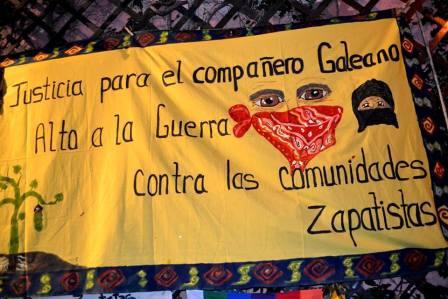 Justicia para el compañero Galeano
Alto a la Guerra
contra las comunidades
Zapatistas